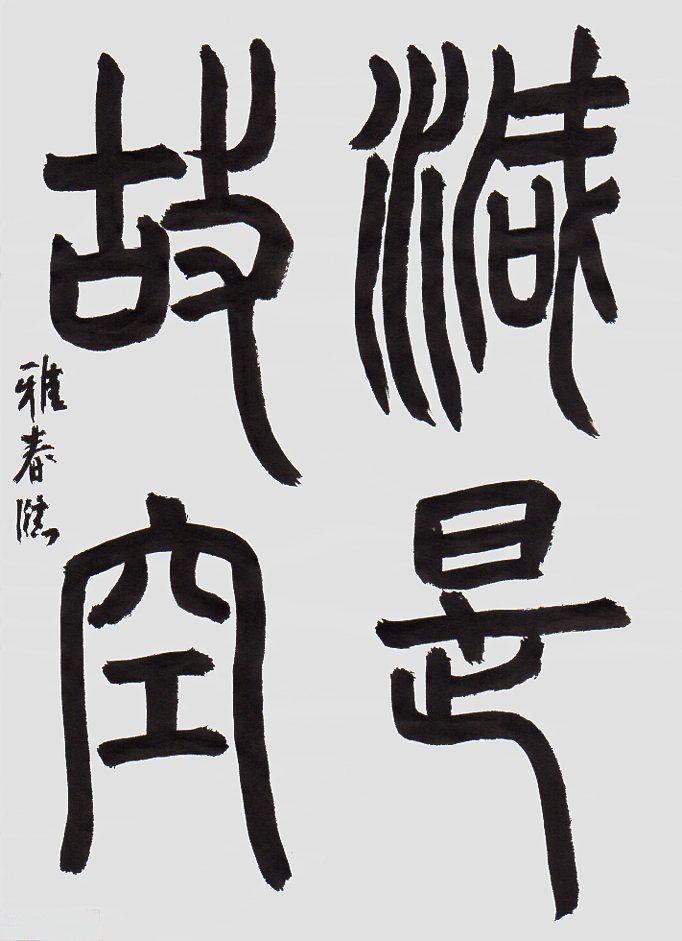 減是
故空
雅春臨